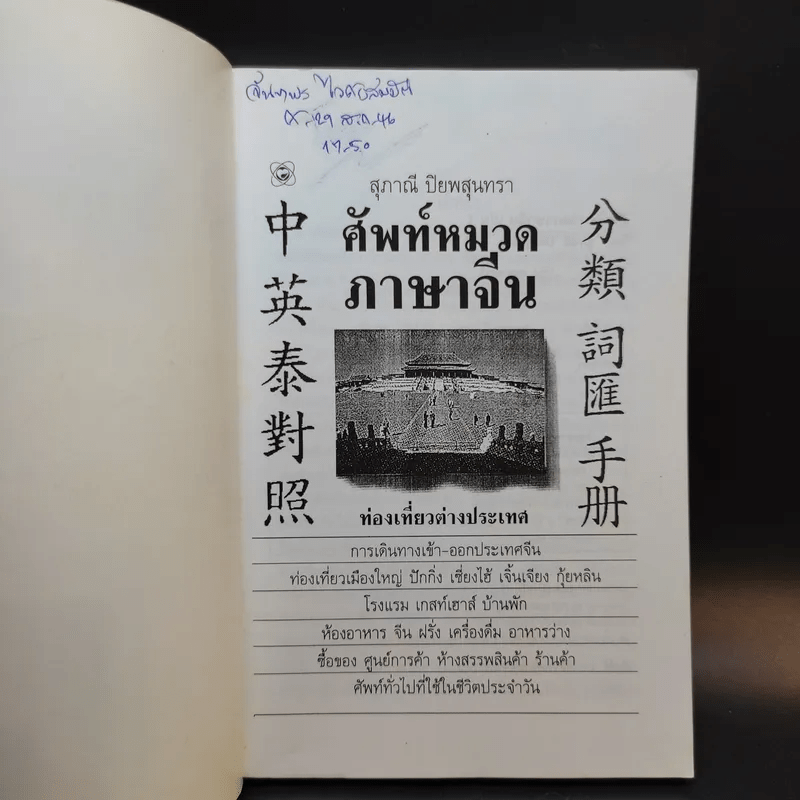 ศ. 29 ส.ค. 46
175.0
สุภาณี ปิยพสุนทรา
中英泰對照
ศัพท์หมวด
ภาษาจีน
分類詞匯手册
ท่องเที่ยวต่างประเทศ
การเดินทางเข้า-ออกประเทศจีน
ท่องเที่ยวเมืองใหญ่ ปักกิ่ง เซี่ยงไฮ้ เจิ้นเจียง กุ้ยหลิน
โรงแรม เกสท์เฮาส์ บ้านพัก
ห้องอาหาร จีน ฝรั่ง เครื่องดื่ม อาหารว่าง
ซื้อของ ศูนย์การค้า ห้างสรรพสินค้า ร้านค้า
ศัพท์ทั่วไปที่ใช้ในชีวิตประจำวัน